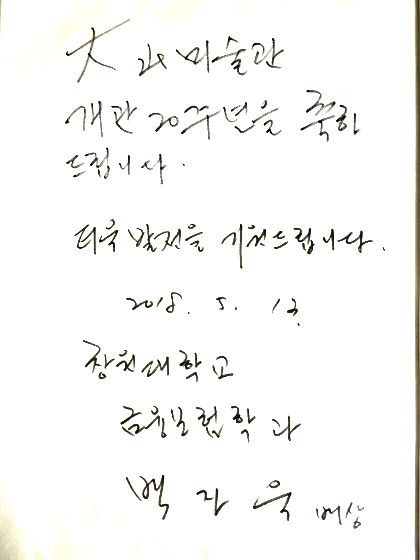 大山미술관
개관 20주년을 축하
드립니다.
더욱 발전을 기원드립니다.
2018. 5. 13.
창원대학교
금융보험학과
백자욱 배상